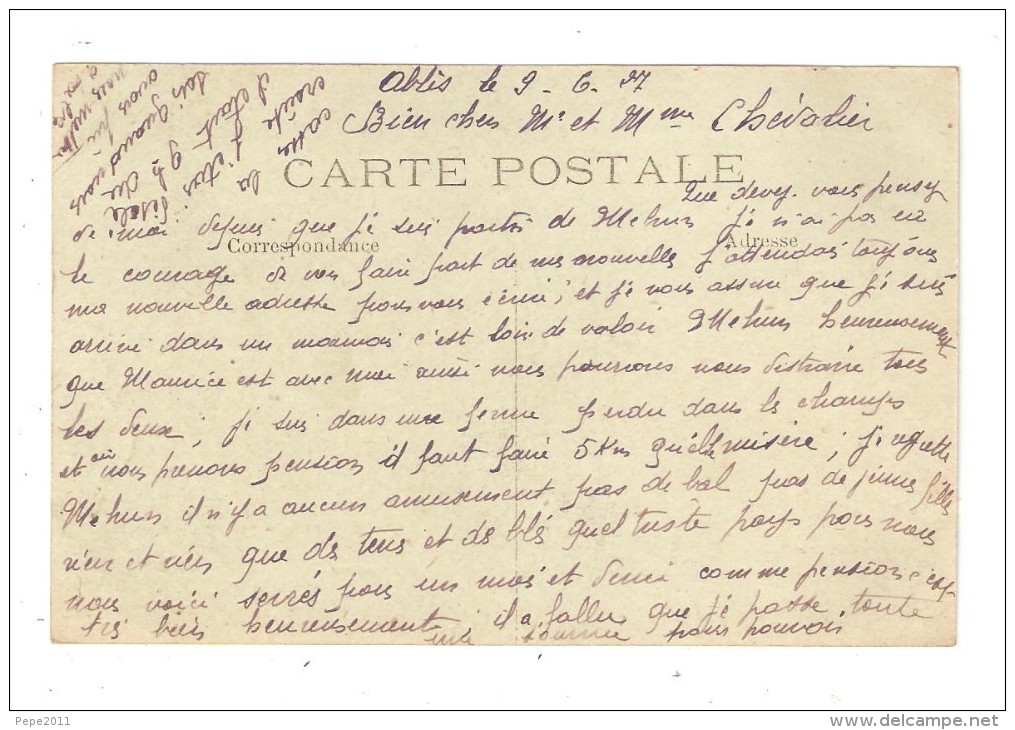 Ablis le 9 - 6 . 27
Bien chers Mr et Mme Chévalier
CARTE POSTALE
Que devez vous penser
de moi depuis que je suis partis de Mehun je n'ai pas eu
Correspondance
Adresse
le courage de vous faire part de mes nouvelles j'attendais toujours
ma nouvelle adresse pour vous écrire ; et je vous assure que je suis
arrivé dans un mauvais c'est loin de valoir Mehun heureusement
que Maurice est avec moi aussi nous pourrons nous distraire tous
les deux ; je suis dans une ferme perdu dans les champs
et où nous prenons pension il faut faire 5 Km quelle misère ; je regrette
Mehun il n'y a aucun amusement pas de bal pas de jeunes filles
rien et rien que des terres et des blés quel triste pays pour nous
nous voici serrés pour un mois et demi comme pension c'est
très bien heureusement, il a fallu que je passe toute
une tournée pour pouvoir
casser
croute
il était 9h du
soir quand nous
avons pu
nous mettre
Pepe2011
www.delcampe.net